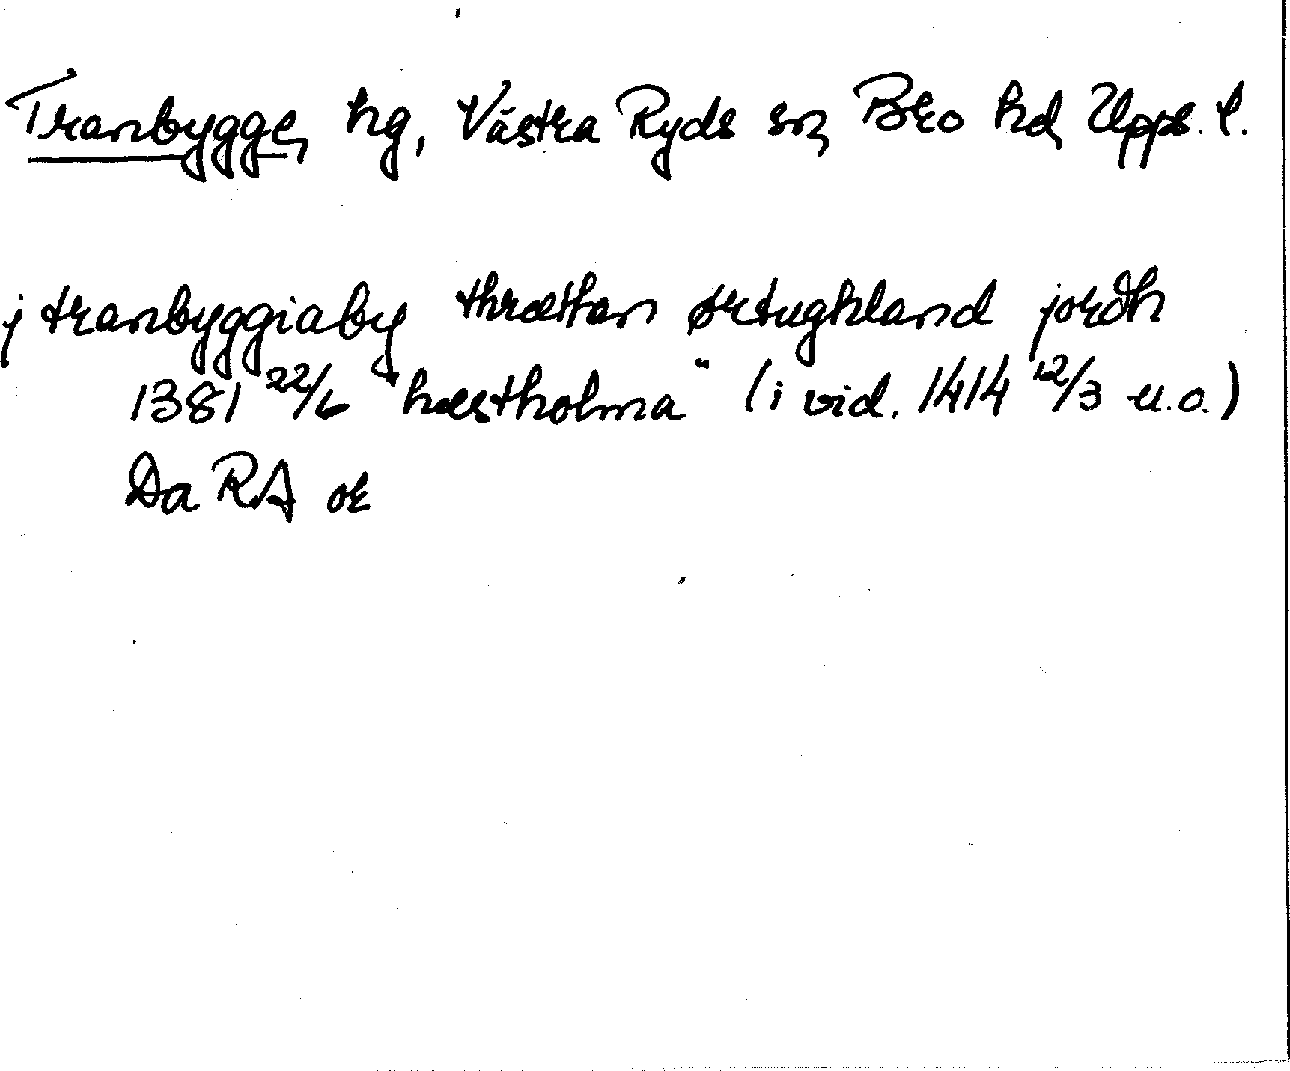 Tranbygge, hg, Västra Ryds sn, Bro hd, Upps. l.
j tranbyggiaby thrættan ørtughland jordh
1381 22/6 "hæstholma" (i vid. 1414 12/3 u.o.)
Da RA or